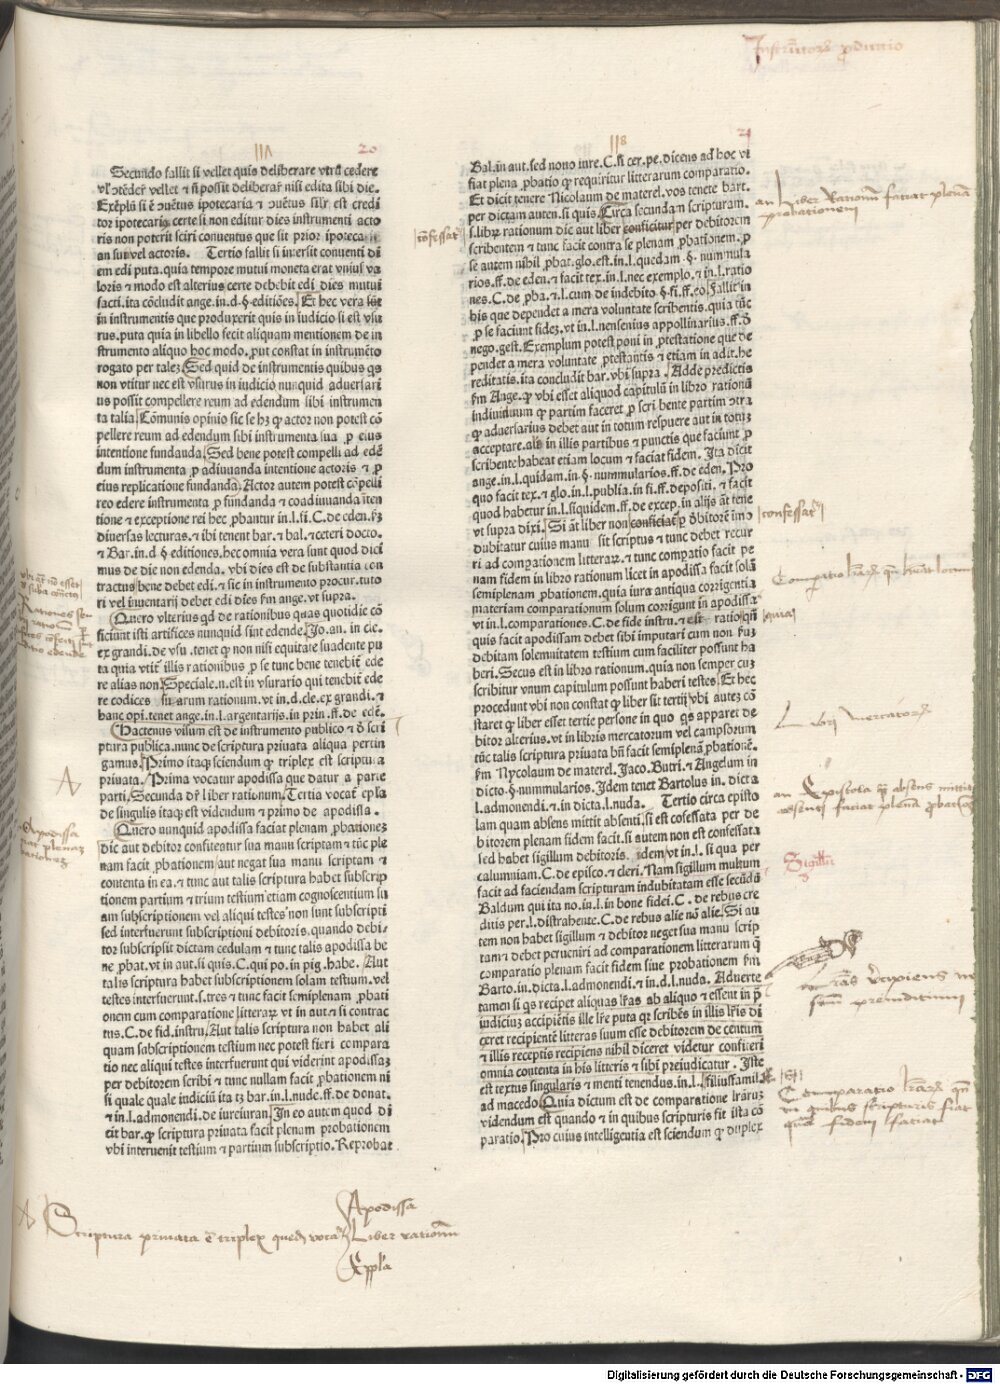 Instrumētorū ꝓductio
117 20
Secundo fallit si vellet quis deliberare vtrū cedere
vl' ɔtēder̄ vellet ⁊ nō possit deliberar̄ nisi edita sibi die.
tor ipotecari⁹ certe si non editur dies instrumenti acto
ris non poterit sciri conuentus que sit prior ipoteca
an sui vel actoris. Tertio fallit si in versit conuenti di
em edi puta. quia tempore mutui moneta erat vnius va
loris ⁊ modo est alterius certe debebit edi dies mutui
facti. ita cōcludit ange. in. d. §. editiōes. Et hec vera sūt
in instrumentis que produxerit quis in iudicio si est vsu
rus. puta quia in libello fecit aliquam mentionem de in
strumento aliquo hoc modo. put constat in instrumēto
rogato per talez. Sed quid de instrumentis quibus qs
non vtitur nec est vsurus in iudicio nunquid aduersari
us possit compellere reum ad edendum sibi instrumen
ta talia. Cōmunis opinio sic se hz ꝙ actor non potest cō
pellere reum ad edendum sibi instrumenta sua ꝓ eius
intentione fundanda. Sed bene potest compelli ad edē
dum instrumenta ꝓ adiuuanda intentione actoris ⁊ ꝓ
eius replicatione fundanda. Actor autem potest cōpelli
reo edere instrumenta ꝓ fundanda ⁊ coadiuuanda ītен
tione ⁊ exceptione rei hec ꝓbantur in. l. fi. C. de eden. ſz
diuersas lecturas. ⁊ ibi tenent bar. ⁊ bal. ⁊ ceteri docto.
⁊ Bar. in. d §. editiones. hec omnia vera sunt quod dici
mus de die non edenda. vbi dies est de substantia con
tractus bene debet edi. ⁊ sic in instrumento procur. tuto
ri vel inuentarij debet edi dies ſm ange. vt supra.
Quero vlterius qd de rationibus quas quotidie cō
ficiunt isti artifices nunquid sint edende. Jo. an. in cle.
ex grandi. de vsu. tenet ꝙ non nisi equitate suadente pu
ta quia vtiſ illis rationibus ꝓ se tunc bene tenebiſ ede
re alias non. Speciale. n. est in vsurario qui tenebiſ ede
re codices suarum rationum. vt in. d. cle. ex grandi. ⁊
hanc opi. tenet ange. in. l. argentarijs. in prin. ff. de edē.
Hactenus visum est de instrumento publico ⁊ ō scri
ptura publica. nunc de scriptura priuata aliqua pertin
gamus. Primo itaqꝫ sciendum ꝙ triplex est scriptura
priuata. Prima vocatur apodissa que datur a parte
parti. Secunda dr̄ liber rationum. Tertia vocaſ epl'a
de singulis itaqꝫ est videndum ⁊ primo de apodissa.
Quero nunquid apodissa faciat plenam ꝓbationez
dic aut debitor confiteatur sua manu scriptam ⁊ tūc ple
nam facit ꝓbationem aut negat sua manu scriptam ⁊
contenta in ea. ⁊ tunc aut talis scriptura habet subscrip
tionem partium ⁊ trium testium etiam cognoscentium su
am subscriptionem vel aliqui testes non sunt subscripti
sed interfuerunt subscriptioni debitoris. quando debi/
tor subscripsit dictam cedulam ⁊ tunc talis apodissa be
ne ꝓbat. vt in aut. si quis. C. qui po. in pig. habe. Aut
talis scriptura habet subscriptionem solam testium. vel
testes interfuerunt. s. tres ⁊ tunc facit semiplenam ꝓbati
onem cum comparatione litteraꝝ vt in aut. si contrac
tus. C. de fid. instru. Aut talis scriptura non habet ali
quam subscriptionem testium nec potest fieri compara
tio nec aliqui testes interfuerunt qui viderint apodissaz
per debitorem scribi ⁊ tunc nullam facit ꝓbationem ni
si quale quale indiciū ita tꝫ bar. in. l. nude. ff. de donat.
⁊ in. l. admonendi. de iureiuran. In eo autem quod di
cit bar. ꝙ scriptura priuata facit plenam probationem
vbi interuenit testium ⁊ partium subscriptio. Reprobat
Apodissa
Scriptura priuata ē triplex Liber rationū
Ep̄l'a
118 21
Bal. in aut. sed nouo iure. C. si cer. pe. dicens ad hoc vt
fiat plena ꝓbatio ꝙ requiritur litterarum comparatio.
Et dicit tenere Nicolaum de materel. vos tenete bart.
per dictam auten. si quis. Circa secundam scripturam.
s. librꝫ rationum dic aut liber conficitur per debitorem
scribentem ⁊ tunc facit contra se plenam ꝓbationem. ꝓ
se autem nihil ꝓbat. glo. est. in. l. quedam. §. nummula
rios. ff. de eden. ⁊ facit tex. in. l. nec exemplo. ⁊ in. l. ratio
nes. C. de pba. ⁊ l. cum de indebito §. fi. ff. eo. Fallit in
his que dependet a mera voluntate scribentis. quia tūc
ꝓ se faciunt fidez. vt in. l. nensenius appollinarius. ff. ō
nego. gest. Exemplum potest poni in ꝓtestatione que de
pendet a mera voluntate ꝓtestantis ⁊ etiam in adit. he
reditatis. ita concludit bar. vbi supra. Adde predictis
ſm Ange. ꝙ vbi esset aliquod capitulū in libro rationū
indiuiduum ꝙ partim faceret ꝓ scribente partim ɔtra
ꝙ aduersarius debet aut in totum respuere aut in totuz
acceptare. als in illis partibus ⁊ punctis que faciunt ꝓ
scribente habeat etiam locum ⁊ faciat fidem. Ita dicit
ange. in. l. quidam. in §. nummularios. ff. de eden. Pro
quo facit tex. ⁊ glo. in. l. publia. in fi. ff. depositi. ⁊ facit
quod habetur in. l. si quidem. ff. de excep. in alijs aūt tene
vt supra dixi. Si aūt liber non conficiatꝫ ꝓ ō bitorē imo
dubitatur cuius manu sit scriptus ⁊ tunc debet recur
ri ad comparationem litteraꝝ. ⁊ tunc compatio facit pe
nam fidem in libro rationum licet in apodissa facit solū
semiplenam ꝓbationem. quia iura antiqua corrigentia
materiam comparationum solum corrigunt in apodissa
vt in. l. comparationes. C. de fide instru. ⁊ est ratio qm̄
quis facit apodissam debet sibi imputari cum non fuꝫ
debitam solemnitatem testium cum faciliter possunt ha
beri. Secus est in libro rationum. quia non semper cuꝫ
scribitur vnum capitulum possunt haberi testes. Et hec
procedunt vbi non constat ꝙ liber sit tertij vbi autez cō
staret ꝙ liber esset tertie persone in quo qs apparet de
bitor alterius. vt in libris mercatorum vel campsorum
tūc talis scriptura priuata bn̄ facit semiplenā ꝓbationē.
ſm Nycolaum de materel. Jaco. Butri. ⁊ Angelum in
dicto. §. nummularios. Idem tenet Bartolus in. dicta
l. admonendi. ⁊ in dicta. l. nuda. Tertio circa episto
lam quam absens mittit absenti. si est cōfessata per de
bitorem plenam fidem facit. si autem non est confessata
sed habet sigillum debitoris. idem vt in. l. si qua per
calumniam. C. de episco. ⁊ cleri. Nam sigillum multum
facit ad faciendam scripturam indubitatam esse secūdū
Baldum qui ita no. in. l. in bone fidei. C. de rebus cre
ditis per. l. distrahente. C. de rebus alie nō alie. Si au
tem non habet sigillum ⁊ debitor neget sua manu scrip
tam ⁊ debet perueniri ad comparationem litterarum q̄
comparatio plenam facit fidem siue probationem ſm
Barto. in. dicta. l. admonendi. ⁊ in. d. l. nuda. Aduerte
tamen si qs recipet aliquas lr̄as ab aliquo ⁊ essent in p̄
iudiciuꝫ accipiētis ille lr̄e puta qꝫ scribēs in illis lr̄is di
ceret recipientē litteras suum esse debitorem de centum
⁊ illis receptis recipiens nihil diceret videtur confiteri
omnia contenta in his litteris ⁊ sibi preiudicatur. Iste
est textus singularis ⁊ menti tenendus. in. l. filiusfamil.
ad macedo. Quia dictum est de comparatione lr̄aruꝫ
videndum est quando ⁊ in quibus scripturis fit ista cō
paratio. Pro cuius intelligentia est sciendum ꝙ duplex
an Liber rationū faciat plenā
probationem
confessatꝫ
Comparatio lr̄arū qn̄ habeat locum
quia
an Epistola q̄ absens mittit
absenti faciat plenā probatiōꝫ
Sigillū
Comparatio lr̄arū qn̄
in quibus scripturis fiat
fidem faciat
Digitalisierung gefördert durch die Deutsche Forschungsgemeinschaft - DFG